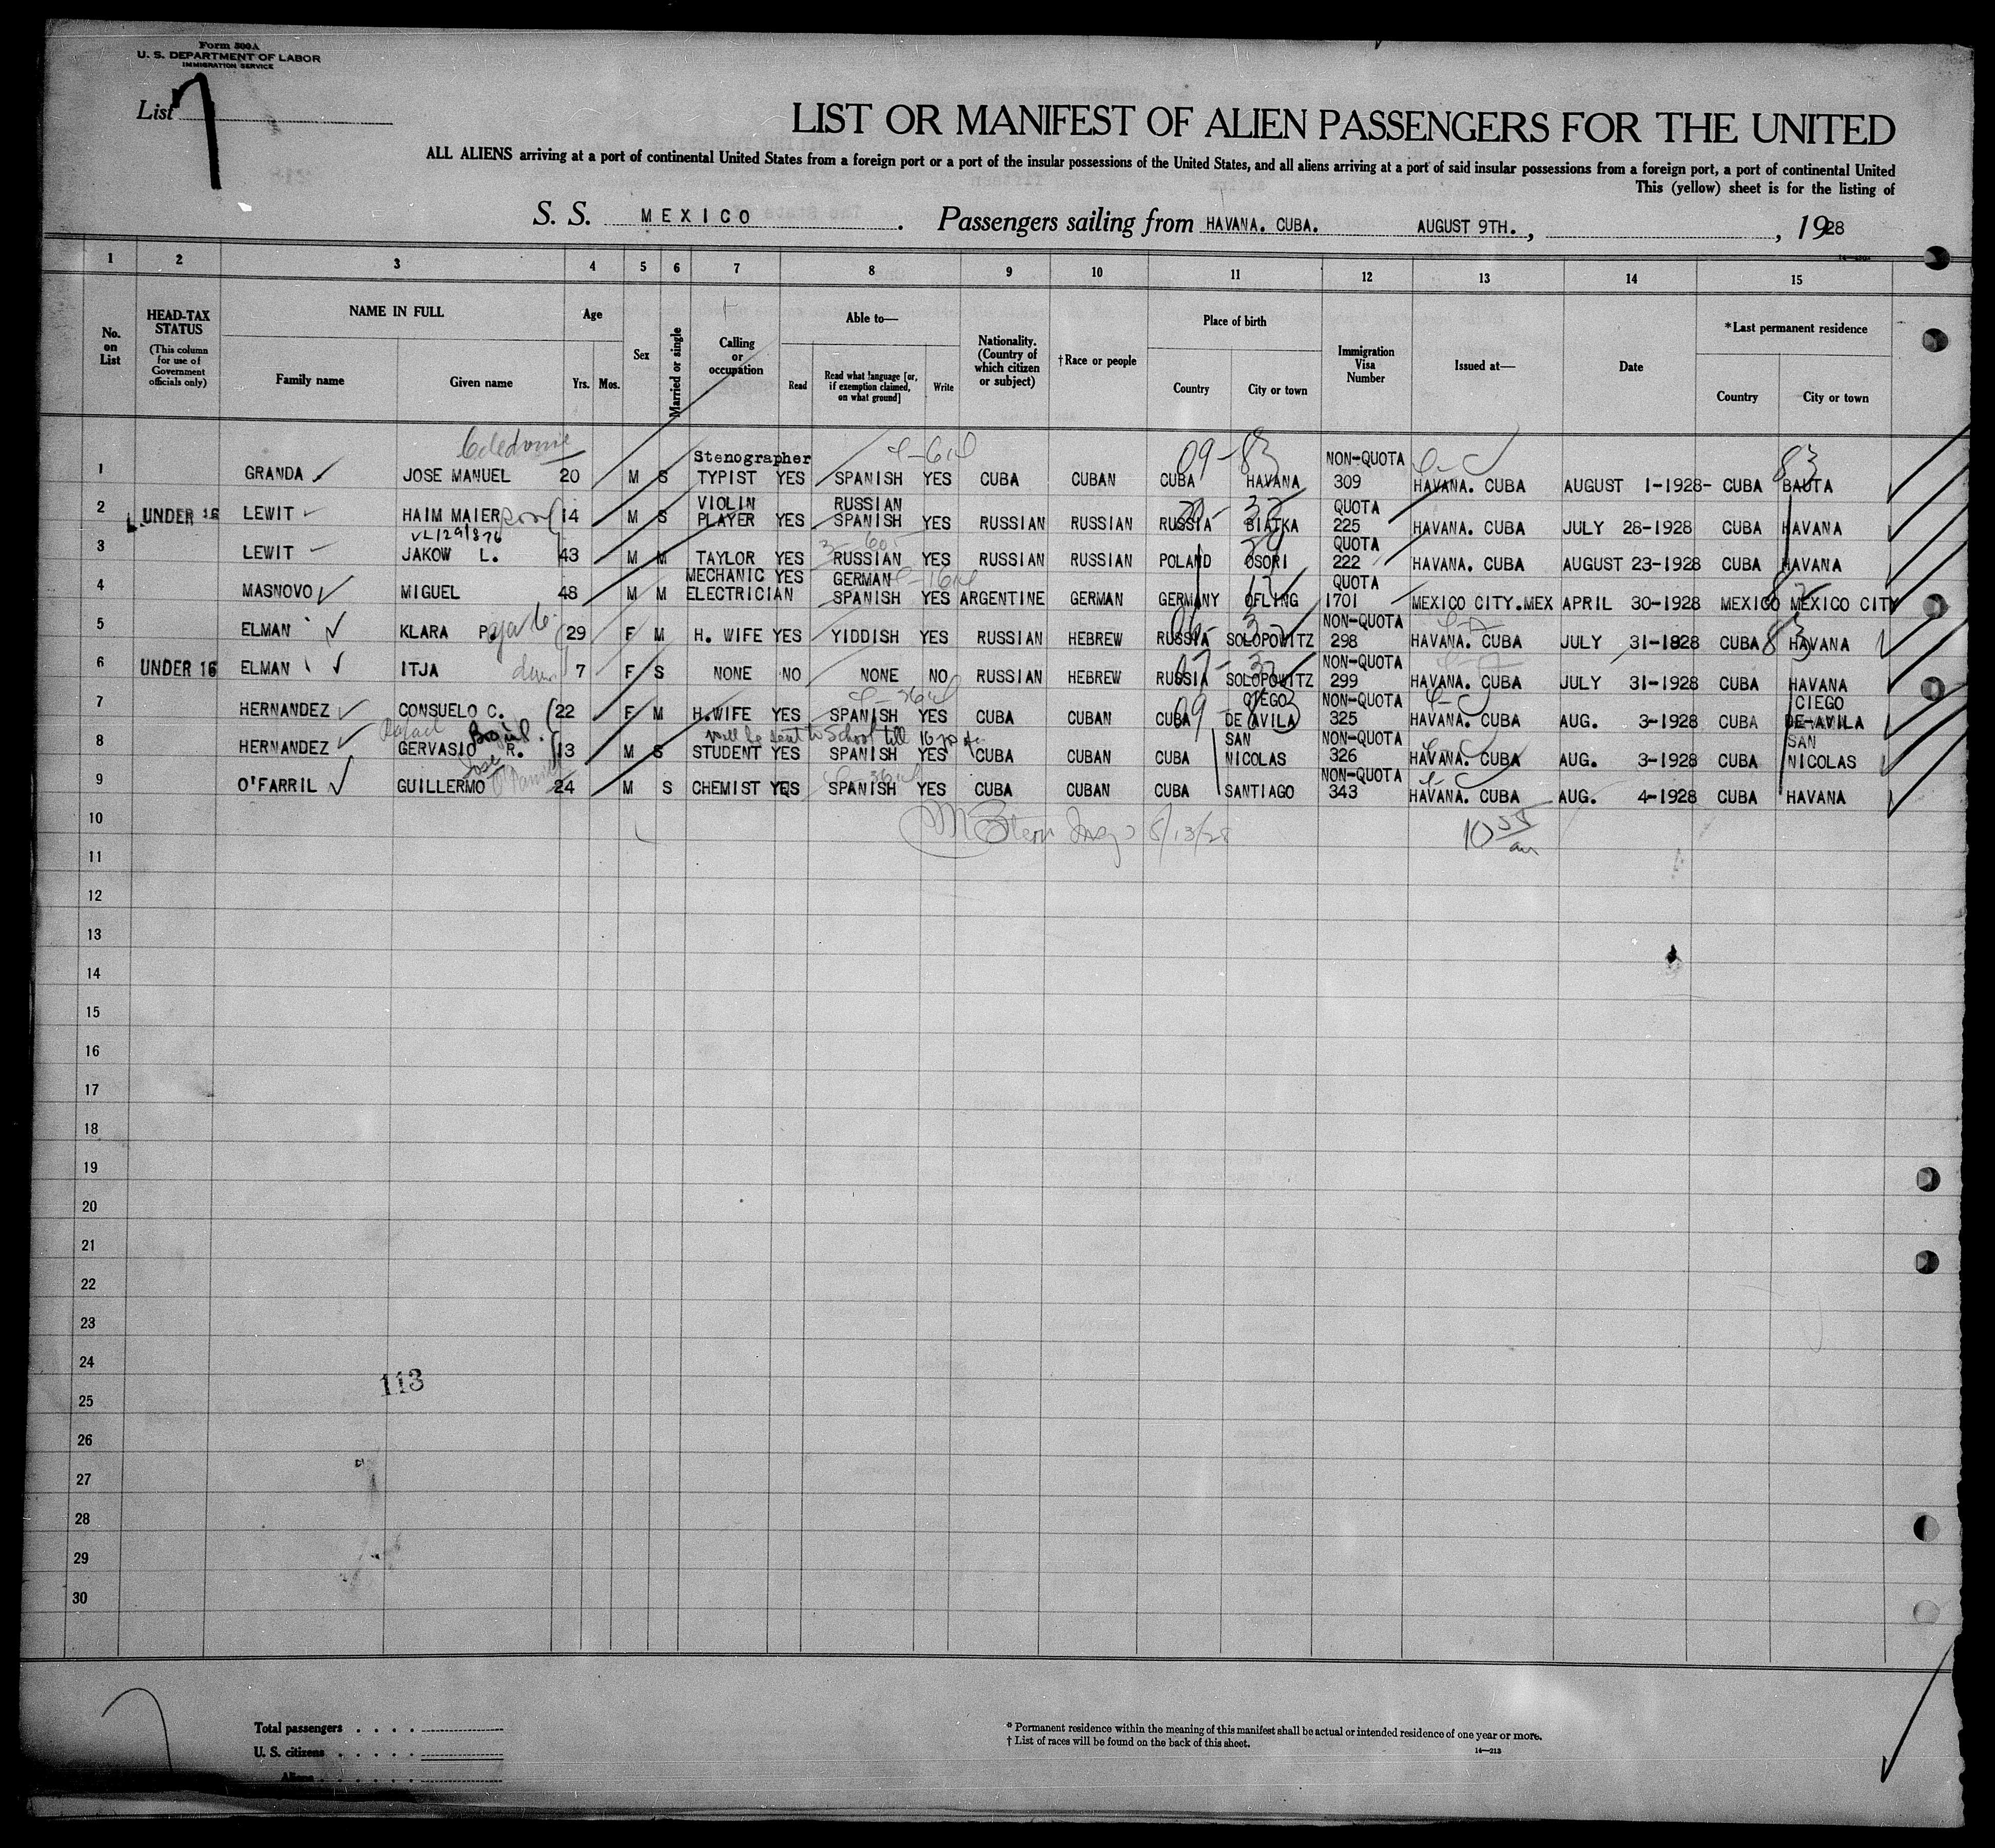 Form 500A
U. S. DEPARTMENT OF LABOR
IMMIGRATION SERVICE
List 7
LIST OR MANIFEST OF ALIEN PASSENGERS FOR THE UNITED
ALL ALIENS arriving at a port of continental United States from a foreign port or a port of the insular possessions of the United States, and all aliens arriving at a port of said insular possessions from a foreign port, a port of continental United
This (yellow) sheet is for the listing of
S. S. MEXICO. Passengers sailing from HAVANA. CUBA. AUGUST 9TH., , 1928
1 2 3 4 5 6 7 8 9 10 11 12 13 14 15
No. on List
HEAD-TAX STATUS
(This column for use of Government officials only)
NAME IN FULL
Family name Given name
Age
Yrs. Mos.
Sex
Married or single
Calling or occupation
Able to—
Read Read what language [or, if exemption claimed, on what ground] Write
Nationality. (Country of which citizen or subject)
†Race or people
Place of birth
Country City or town
Immigration Visa Number
Issued at—
Date
*Last permanent residence
Country City or town
1 GRANDA JOSE MANUEL 20 M S Stenographer TYPIST YES SPANISH YES CUBA CUBAN CUBA HAVANA NON-QUOTA 309 HAVANA. CUBA AUGUST 1-1928- CUBA BAUTA
2 UNDER 16 LEWIT HAIM MAIER 14 M S VIOLIN PLAYER YES RUSSIAN SPANISH YES RUSSIAN RUSSIAN RUSSIA BIATKA QUOTA 225 HAVANA. CUBA JULY 28-1928 CUBA HAVANA
3 LEWIT JAKOW L. 43 M M TAYLOR YES RUSSIAN YES RUSSIAN RUSSIAN POLAND OSORI QUOTA 222 HAVANA. CUBA AUGUST 23-1928 CUBA HAVANA
4 MASNOVO MIGUEL 48 M M MECHANIC ELECTRICIAN YES GERMAN SPANISH YES ARGENTINE GERMAN GERMANY OFLING QUOTA 1701 MEXICO CITY.MEX APRIL 30-1928 MEXICO MEXICO CITY
5 ELMAN KLARA P. 29 F M H. WIFE YES YIDDISH YES RUSSIAN HEBREW RUSSIA SOLOPOWITZ NON-QUOTA 298 HAVANA. CUBA JULY 31-1828 CUBA HAVANA
6 UNDER 16 ELMAN ITJA 7 F S NONE NO NONE NO RUSSIAN HEBREW RUSSIA SOLOPOWITZ NON-QUOTA 299 HAVANA. CUBA JULY 31-1928 CUBA HAVANA
7 HERNANDEZ CONSUELO C. 22 F M H.WIFE YES SPANISH YES CUBA CUBAN CUBA CIEGO DE AVILA NON-QUOTA 325 HAVANA. CUBA AUG. 3-1928 CUBA CIEGO DE-AVILA
will be sent to School till 16 yr
8 HERNANDEZ GERVASIO R. 13 M S STUDENT YES SPANISH YES CUBA CUBAN CUBA SAN NICOLAS NON-QUOTA 326 HAVANA. CUBA AUG. 3-1928 CUBA SAN NICOLAS
9 O'FARRIL Jose GUILLERMO 24 M S CHEMIST YES SPANISH YES CUBA CUBAN CUBA SANTIAGO NON-QUOTA 343 HAVANA. CUBA AUG. 4-1928 CUBA HAVANA
10 8/13/28 10 55 am
11
12
13
14
15
16
17
18
19
20
21
22
23
24
113
25
26
27
28
29
30
Total passengers
U. S. citizens
Aliens
* Permanent residence within the meaning of this manifest shall be actual or intended residence of one year or more.
† List of races will be found on the back of this sheet.
14—213